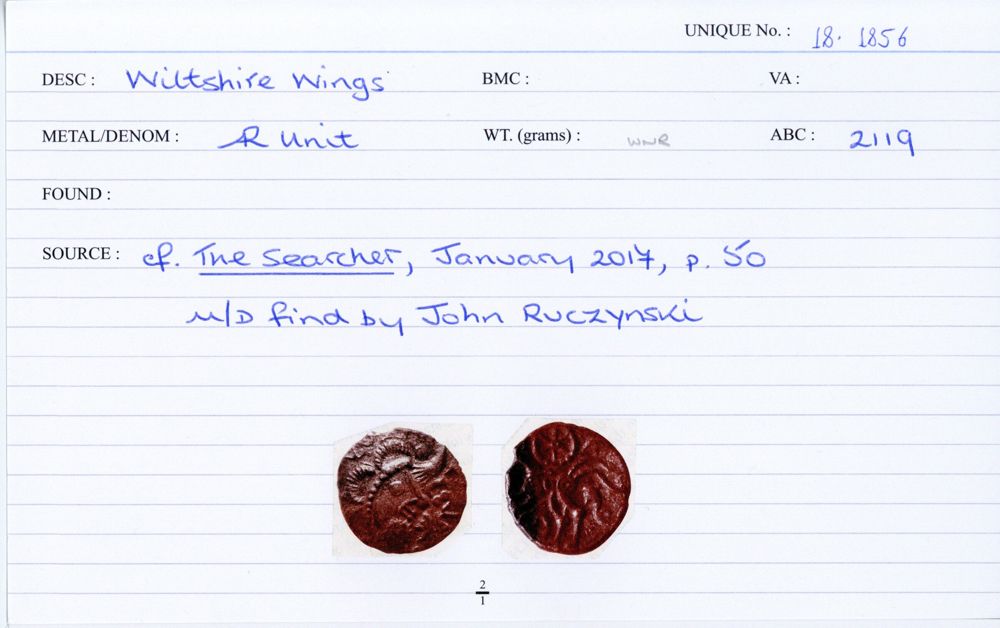 UNIQUE No. : 18. 1856
DESC : Wiltshire Wings BMC : VA :
METAL/DENOM : AR Unit WT. (grams) : WNR ABC : 2119
FOUND :
SOURCE : cf. The Searcher, January 2017, p. 50
M/D find by John Ruczynski
2
1